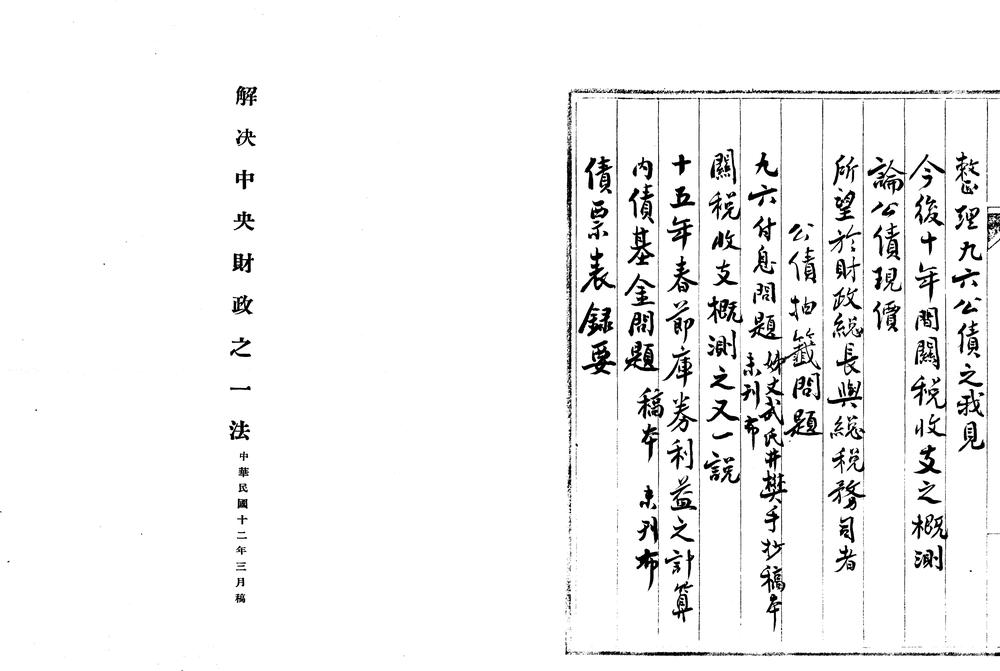 整理九六公債之我見
今後十年間關稅收支之概測
論公債現價
所望於財政総長與総稅務司者
公債抽籤問題
九六付息問題 姊丈武氏井樊手抄稿本
未刊布
關稅收支概測之又一説
十五年春節庫券利益之計算
內債基金問題 稿本 未刊布
債票表錄要
解決中央財政之一法 中華民國十二年三月稿